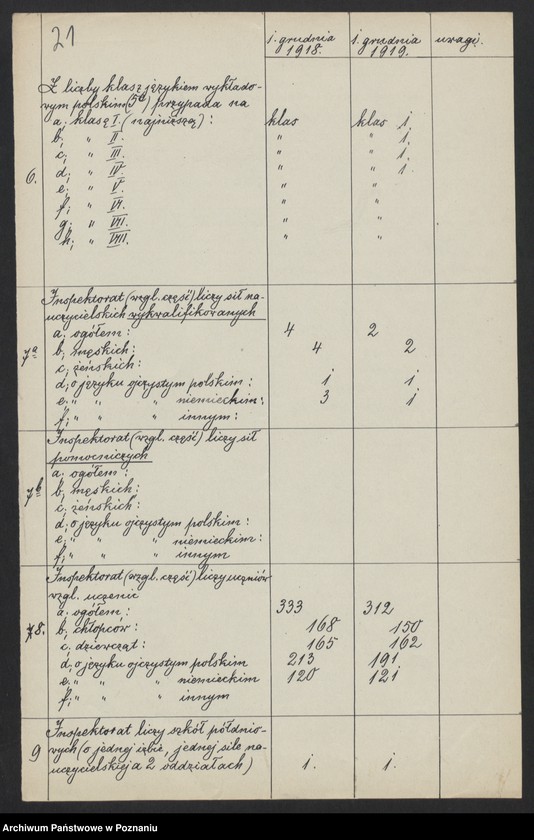 21
1. grudnia 1918. 1. grudnia 1919. uwagi.
Z liczby klas z językiem wykłado-
wym polskim (5ᵈ) przypada na
a. klasę I. (najniższą) : klas klas 1.
b; " II. " " 1.
c; " III. " " 1.
d; " IV. " " 1.
6. e; " V. " "
f; " VI. " "
g; " VII. " "
h; " VIII. " "
Inspektorat (wzgl. część) liczy sił na-
uczycielskich wykwalifikowanych
a. ogółem: 4 2
7a b; męskich: 4 2
c; żeńskich:
d; o języku ojczystym polskim: 1 1
e; " " " niemieckim: 3 1
f; " " " innym:
Inspektorat (wzgl. część) liczy sił
pomocniczych
a. ogółem:
7b b; męskich:
c; żeńskich:
d; o języku ojczystym polskim:
e; " " " niemieckim:
f; " " " innym
Inspektorat (wzgl. część) liczy uczniów
wzgl. uczenic
a. ogółem: 333 312
8. b; chłopców: 168 150
c. dziewcząt: 165 162
d; o języku ojczystym polskim 213 191
e; " " " niemieckim 120 121
f; " " " innym
Inspektorat liczy szkół półdnio-
9 wych (o jednej izbie, jednej sile na-
uczycielskiej a 2 oddziałach) 1. 1.
Archiwum Państwowe w Poznaniu